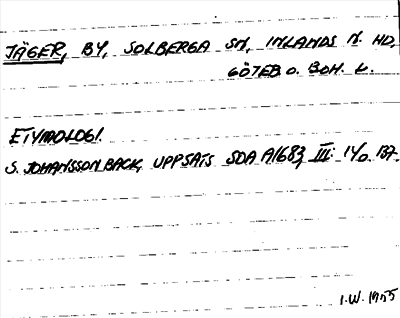 JÄGER, BY, SOLBERGA SN, INLANDS N. HD,
GÖTEB. O. BOH. L.
ETYMOLOGI.
S. JOHANSSON BACK, UPPSATS SOA A1683, III: 1/0. 137.
I.W. 1955